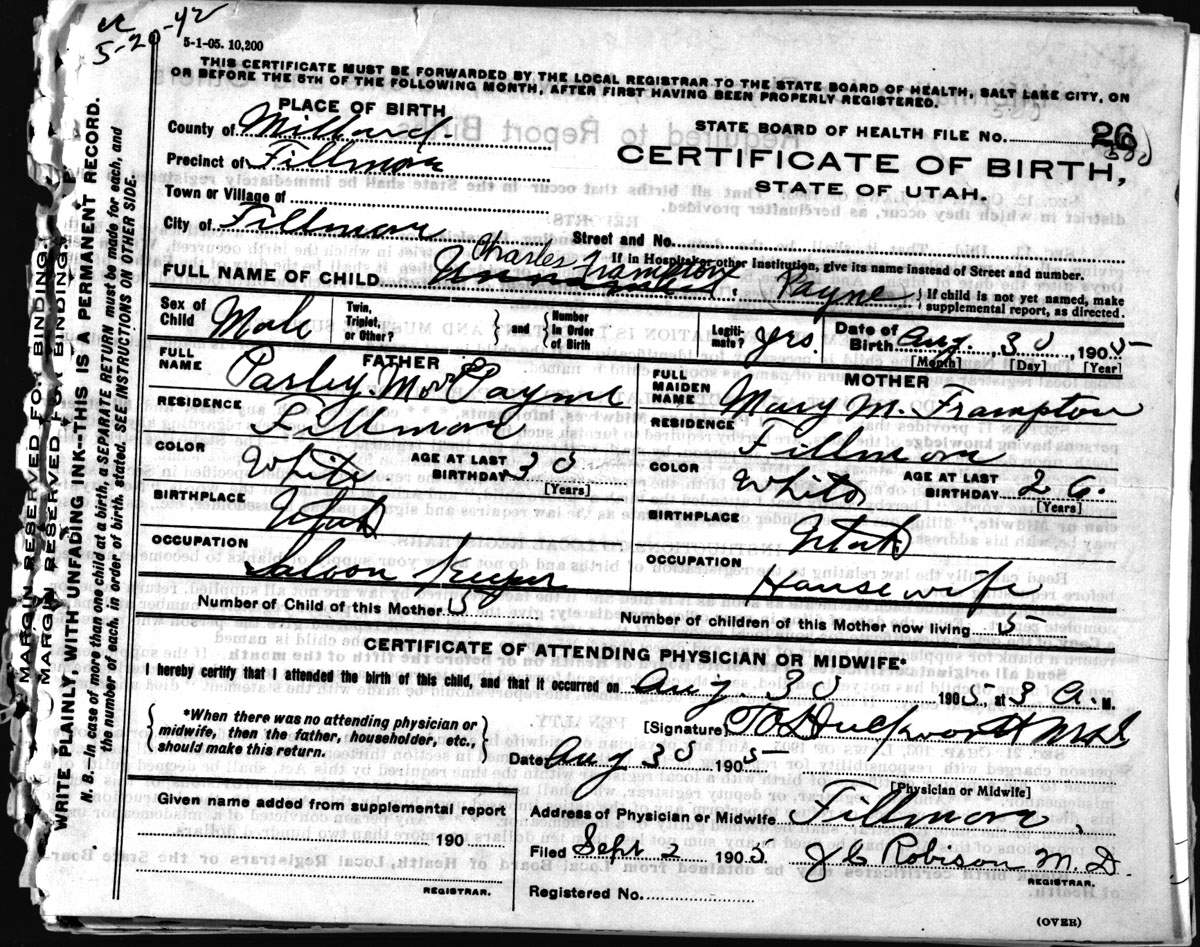 5-20-42
5-1-05. 10,200
THIS CERTIFICATE MUST BE FORWARDED BY THE LOCAL REGISTRAR TO THE STATE BOARD OF HEALTH, SALT LAKE CITY, ON
OR BEFORE THE 5TH OF THE FOLLOWING MONTH, AFTER FIRST HAVING BEEN PROPERLY REGISTERED.
MARGIN RESERVED FOR BINDING.
MARGIN RESERVED FOR BINDING.
WRITE PLAINLY, WITH UNFADING INK--THIS IS A PERMANENT RECORD.
N. B. In case of more than one child at a birth, a SEPARATE RETURN must be made for each, and
the number of each, in order of birth, stated. SEE INSTRUCTIONS ON OTHER SIDE.
PLACE OF BIRTH
County of Millard
Precinct of Fillmore
Town or Village of
City of Fillmore
STATE BOARD OF HEALTH FILE No. 26
CERTIFICATE OF BIRTH,
STATE OF UTAH.
Street and No.
If in Hospital or other Institution, give its name instead of Street and number.
Charles Frampton
FULL NAME OF CHILD. Unnamed, Payne
If child is not yet named, make
supplemental report, as directed.
Sex of Child Male
Twin, Triplet, or Other?
and
Number in Order of Birth
Legiti- mate? yes
Date of Birth Aug. 30, 1905
[Month] [Day] [Year]
FATHER
FULL NAME Parley Payne
RESIDENCE Fillmore
COLOR White
AGE AT LAST BIRTHDAY 30
[Years]
BIRTHPLACE Utah
OCCUPATION Saloon Keeper
MOTHER
FULL MAIDEN NAME Mary M. Frampton
RESIDENCE Fillmore
COLOR White
AGE AT LAST BIRTHDAY 26.
[Years]
BIRTHPLACE Utah
OCCUPATION Housewife
Number of Child of this Mother 5
Number of children of this Mother now living 5
CERTIFICATE OF ATTENDING PHYSICIAN OR MIDWIFE*
I hereby certify that I attended the birth of this child, and that it occurred on Aug. 30 1905 at 3 A. M.
*When there was no attending physician or
midwife, then the father, householder, etc.,
should make this return.
[Signature]
Date Aug 30 1905
[Physician or Midwife]
Given name added from supplemental report
190
REGISTRAR.
Address of Physician or Midwife Fillmore,
Filed Sept 2, 1905 J C Robison M.D.
REGISTRAR.
Registered No.
(OVER)